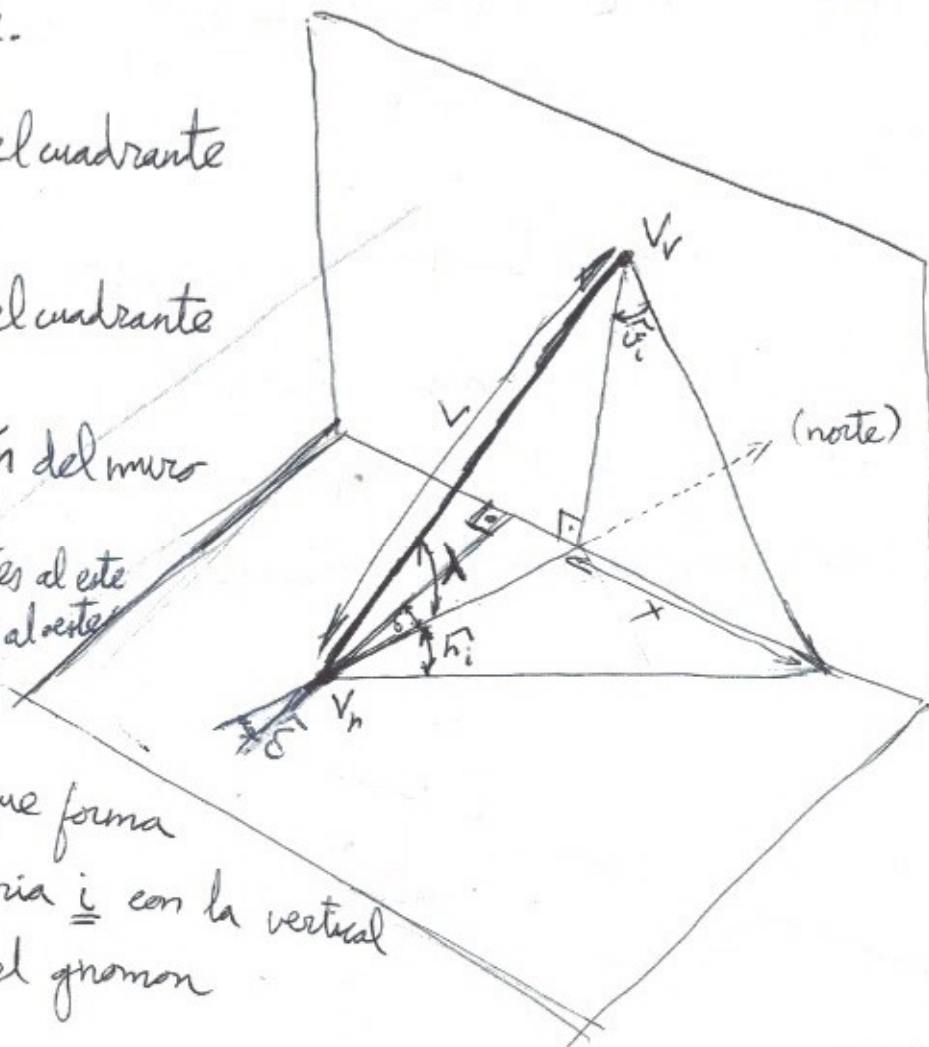 el cuadrante
el cuadrante
del muro
es al este
al oeste
que forma
ria i con la vertical
el gnomon
V_V
v̂_i
V
(norte)
λ
δ
ĥ_i
X
V_h
δ